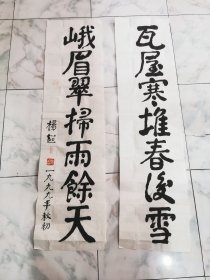 瓦屋寒堆春後雪
峨眉翠掃雨餘天
一九九九年秋初
楊